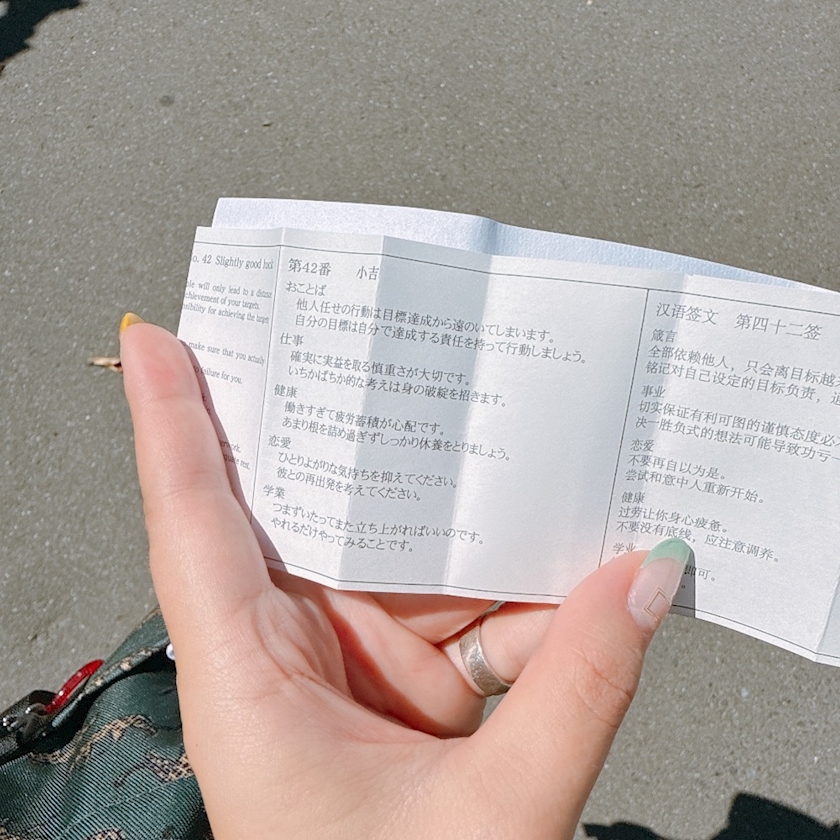 o. 42 Slightly good luck
will only lead to a distance
achievement of your targets.
for achieving the target
make sure that you actually
failure for you.
第42番 小吉
おことば
他人任せの行動は目標達成から遠のいてしまいます。
自分の目標は自分で達成する責任を持って行動しましょう。
仕事
確実に実益を取る慎重さが大切です。
いちかばちか的な考えは身の破綻を招きます。
健康
働きすぎて疲労蓄積が心配です。
あまり根を詰め過ぎずしっかり休養をとりましょう。
恋愛
ひとりよがりな気持ちを抑えてください。
彼との再出発を考えてください。
学業
つまずいたってまた立ち上がればいいのです。
やれるだけやってみることです。
汉语签文 第四十二签
箴言
全部依赖他人，只会离目标越
铭记对自己设定的目标负责，
事业
切实保证有利可图的谨慎态度必
决一胜负式的想法可能导致功亏一
恋爱
不要再自以为是。
尝试和意中人重新开始。
健康
过劳让你身心疲惫。
不要没有底线，应注意调养。
学业
即可。